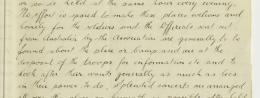 or so is held at the same hour every evening.
No effort is spared to make these places welcome and
homely for the soldiers and the Officials sent out
from Australia by the Association are generally to be
found about the place or Camp and are at the
disposal of the troops for information etc and to
look after their wants generally as much as lies
in their power to do, splendid concerts are arranged